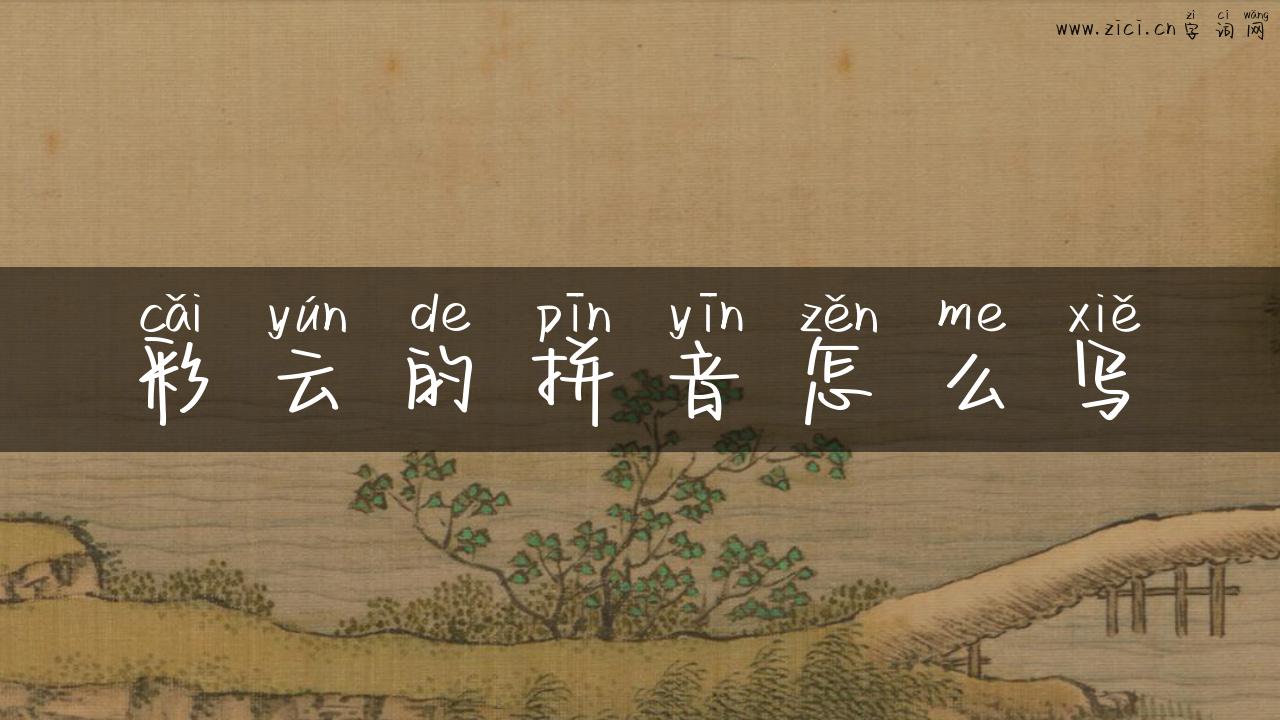 zì cí wǎng
www.zici.cn字词网
cǎi yún de pīn yīn zěn me xiě
彩云的拼音怎么写